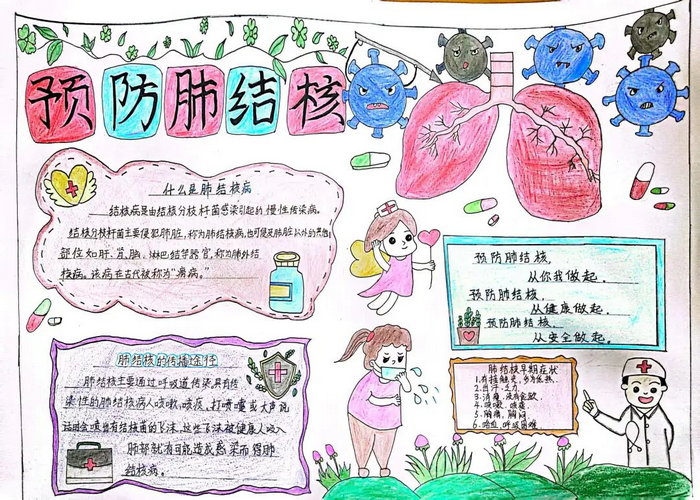 预防肺结核
什么是肺结核病
结核病是由结核分枝杆菌感染引起的慢性传染病。
结核分枝杆菌主要侵犯肺脏，称为肺结核病，也可侵及肺脏以外的其他
部位如肝、肾、脑、淋巴结等器官，称为肺外结
核病。该病在古代被称为“痨病。”
预防肺结核，
从你我做起。
预防肺结核，
从健康做起。
预防肺结核
从安全做起。
肺结核的传播途径
肺结核主要通过呼吸道传染，具有传
染性的肺结核病人咳嗽、咳痰、打喷嚏或大声说
话时会喷出有结核菌的飞沫，这些飞沫被健康人吸入
肺部就有可能造成感染而得肺
结核病。
肺结核早期症状
2.乏力
3.消瘦、没有食欲
4.咳嗽、咳痰
5.胸痛、胸闷
6.咯血、呼吸困难